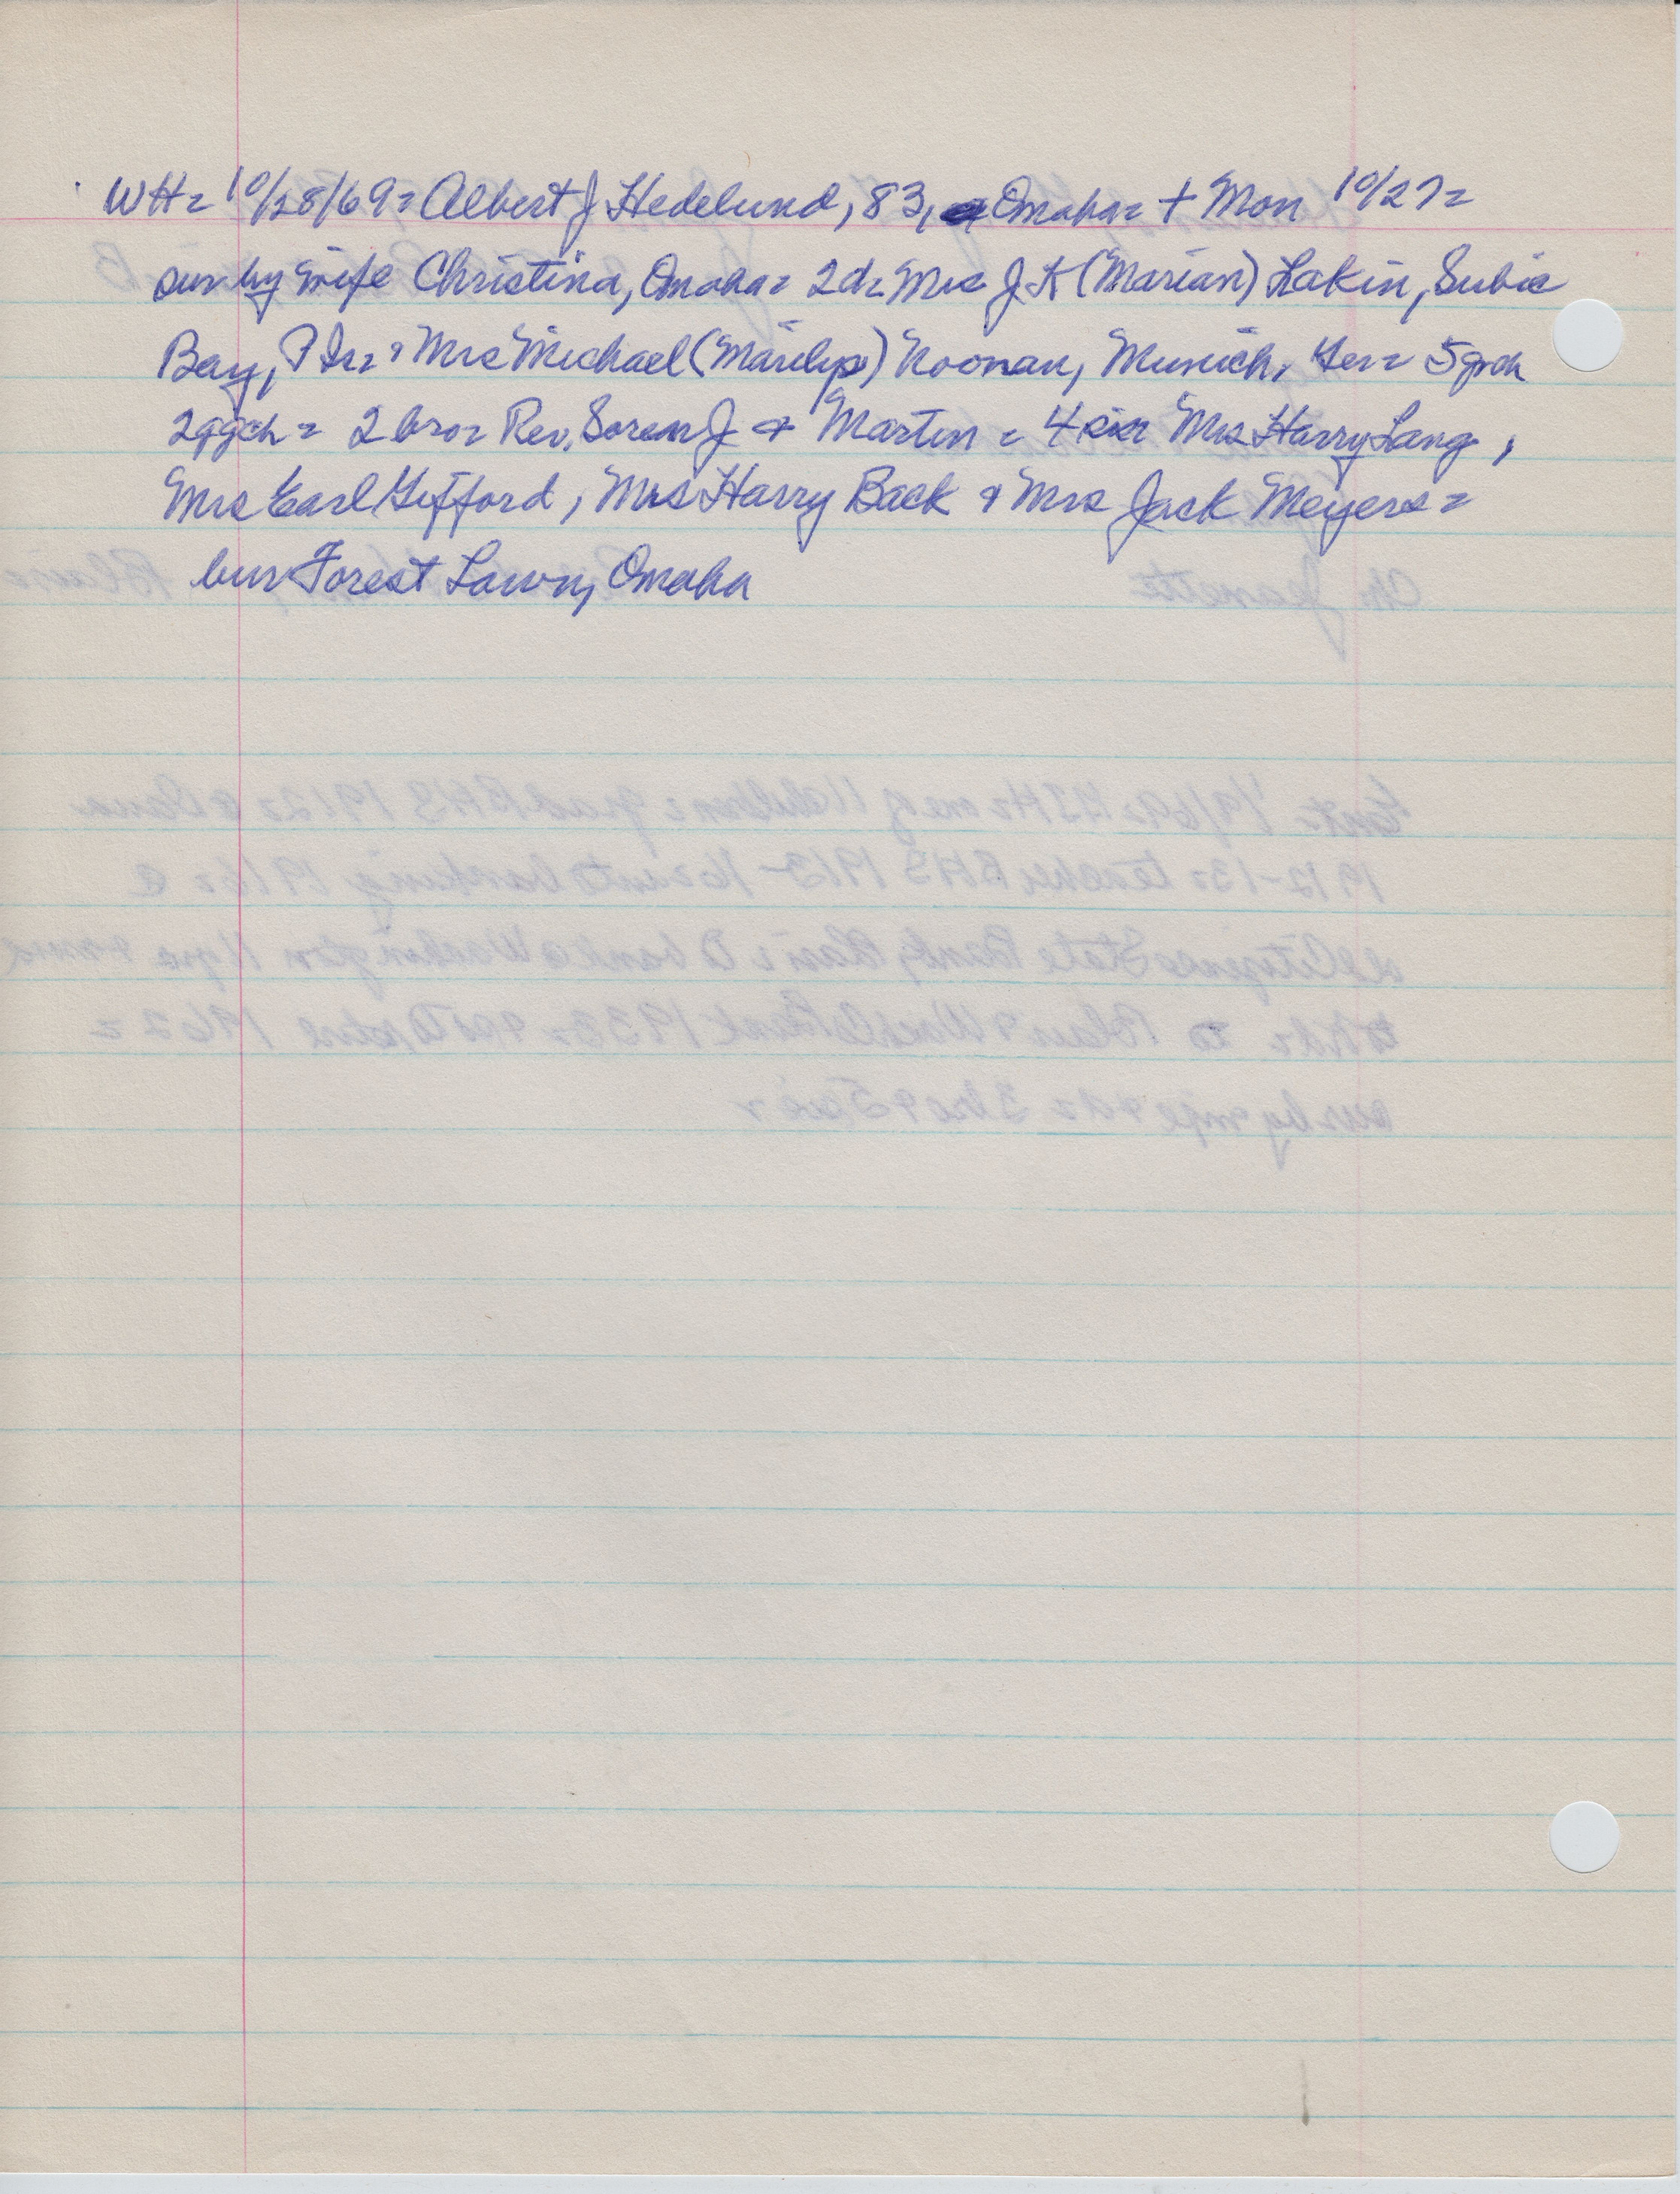 WH= 10/28/69= Albert J Hedelund, 83, Omaha= + Mon 10/27=
sur by wife Christina, Omaha= 2d= Mrs J.K (Marian) Lakin, Subic
Bay, & Mrs Michael (Marilyn) Noonan, Munich, Ger= 5 grch
2 ggch= 2 bro= Rev. Soren J & Martin = 4 sis= Mrs Harry Lang,
Mrs Earl Gifford, Mrs Harry Back & Mrs Jack Meyers=
bur Forest Lawn, Omaha